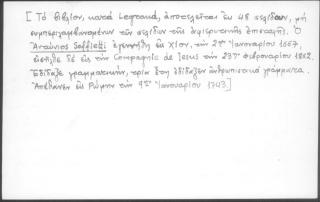 [Τὸ βιβλίον, κατὰ Legrand, ἀποτελεῖται ἐκ 48 σελίδων, μὴ
συμπεριλαμβανομένων τῶν σελίδων τῆς ἀφιερωτικῆς ἐπιστολῆς. Ὁ
Ἀντώνιος ἐγεννήθη ἐν Χίῳ, τὴν 2αν Ἰανουαρίου 1667,
εἰσῆλθε δὲ εἰς τὴν Compagnie de Jesus τὴν 23ην Φεβρουαρίου
Ἐδίδαξε γραμματικήν, τρία ἔτη ἐδίδαξεν ἀνθρωπιστικὰ γράμματα.
Ἀπέθανεν ἐν Ρώμῃ τὴν 9ην Ἰανουαρίου 1743.]